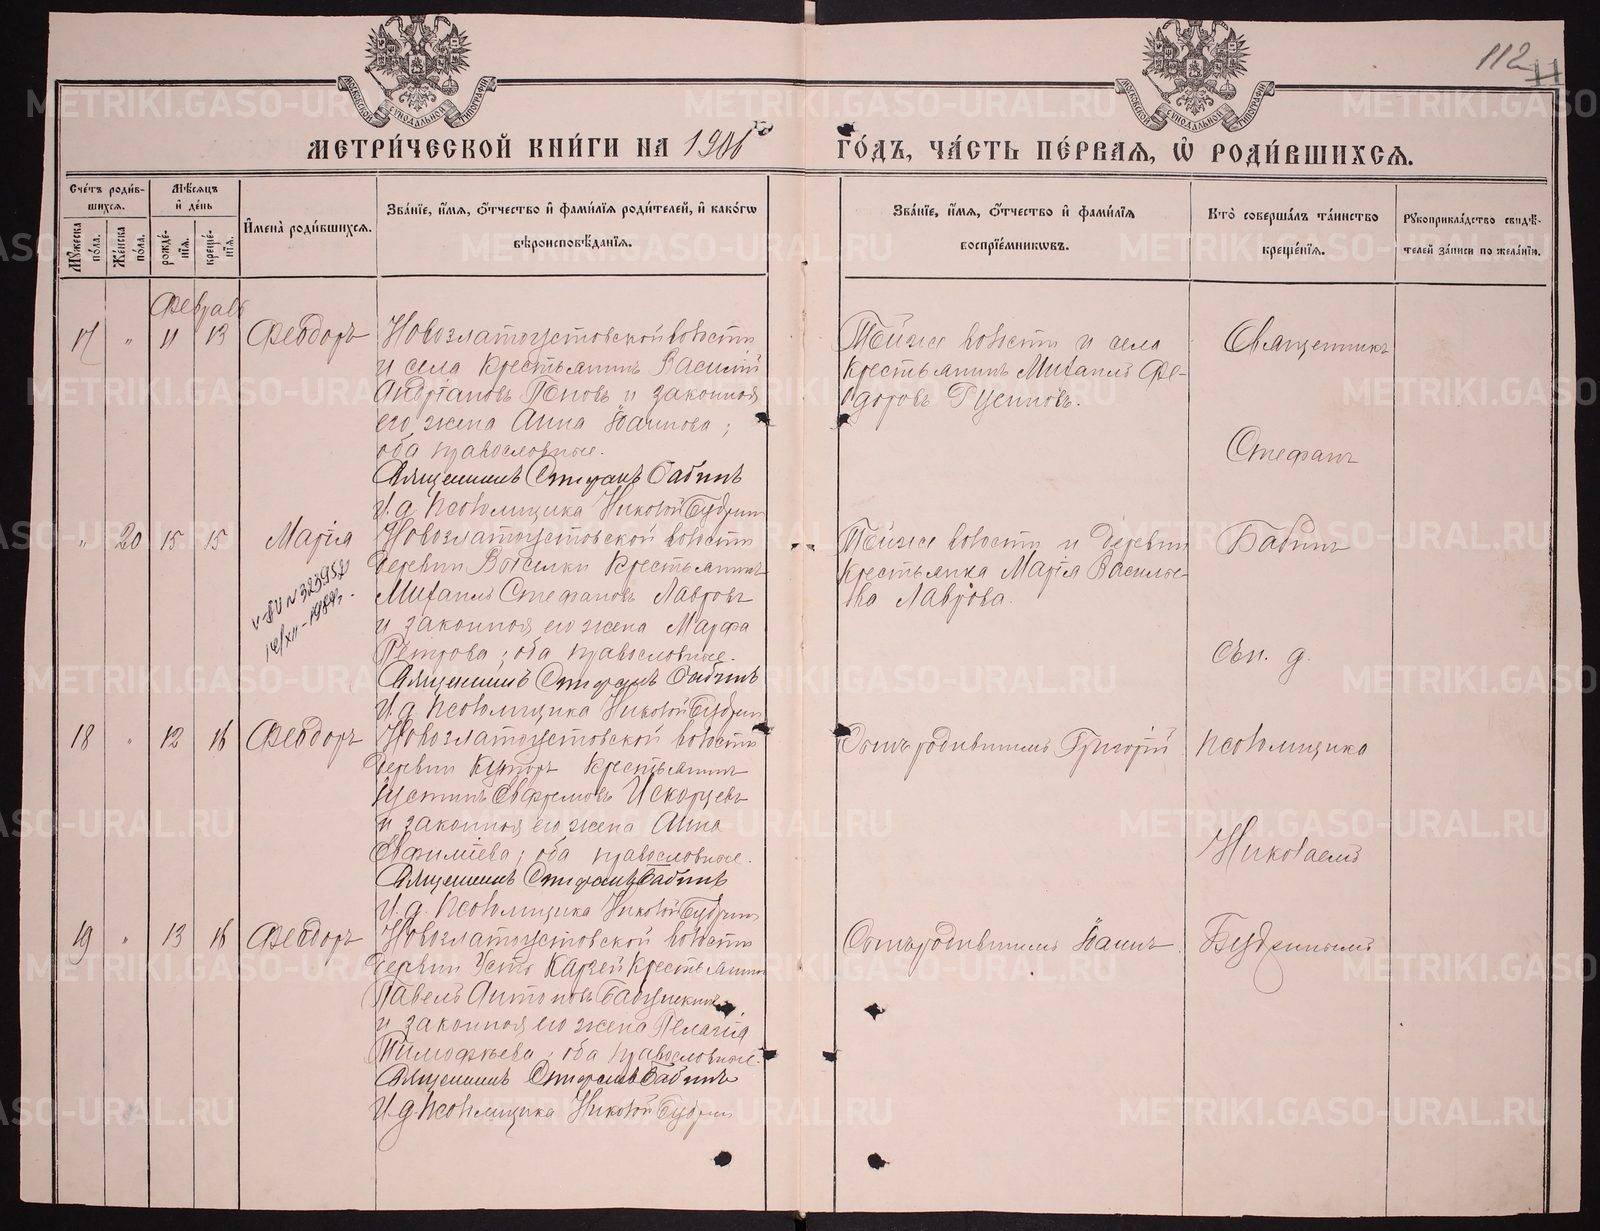 112
МЕТРИ́ЧЕСКОЙ КНИ́ГИ НА 1906
ГО́ДЪ, ЧА́СТЬ ПЕ́РВАЯ, Ѡ҆ РОДИ́ВШИХСЯ.
Сче́тъ роди́в-
шихся.
Мѣ́сяцъ
и҆ де́нь
И҆мена̀ роди́вшихся.
Зва́нїе, и҆́мя, ѻ҆́тчество и҆ фами́лїя роди́телей, и҆ како́гѡ
вѣроисповѣ́данїя.
Зва́нїе, и҆́мя, ѻ҆́тчество и҆ фами́лїя
воспрїе́мникѡвъ.
Кто̀ соверша́лъ та́инство
креще́нїя.
Рꙋкоприкла́дство свидѣ́-
телей за́писи по жела́нїю.
Мꙋ́жеска
по́ла.
Же́нска
по́ла.
рожде́-
нїя.
креще́-
нїя.
Февраль
17 " 11 13 Ѳеодоръ
Новозлатоустовской волости
и села крестьянинъ Василій
Андріановъ Пновъ и законная
его жена Анна Іоаннова;
оба православные.
Священникъ Стефанъ Бабинъ
И. д. псаломщика Николай Будрин
Тойже волости и села
крестьянинъ Михаилъ Ѳе-
одоровъ Гусновъ.
Священникъ
Стефанъ
" 20 15 15 Марія
Новозлатоустовской волости
деревни Выселки крестьянинъ
Михаилъ Стефановъ Лавровъ
и законная его жена Марѳа
Петрова; оба православные.
Священникъ Стефанъ Бабинъ
И. д. псаломщика Николай Будрин
Тойже волости и деревни
крестьянка Марія Василье-
ва Лаврова.
Бабинъ
съ и. д.
18 " 12 16 Ѳеодоръ
Новозлатоустовской волости
деревни крестьянинъ
Іустинъ Евфремовъ Искорцевъ
и законная его жена Анна
Евфиміева; оба православные.
Священникъ Стефанъ Бабинъ
И. д. псаломщика Николай Будрин
Отъ родившимъ Григорій
псаломщика
Николаемъ
19 " 13 16 Ѳеодоръ
Новозлатоустовской волости
деревни Усть Карзей крестьянинъ
Павелъ Антоновъ Бабушкинъ
и законная его жена Пелагія
Тимоѳеева; оба православные.
Священникъ Стефанъ Бабинъ
И. д. псаломщика Николай Будрин
Іоаннъ
Будринымъ
METRIKI.GASO-URAL.RU